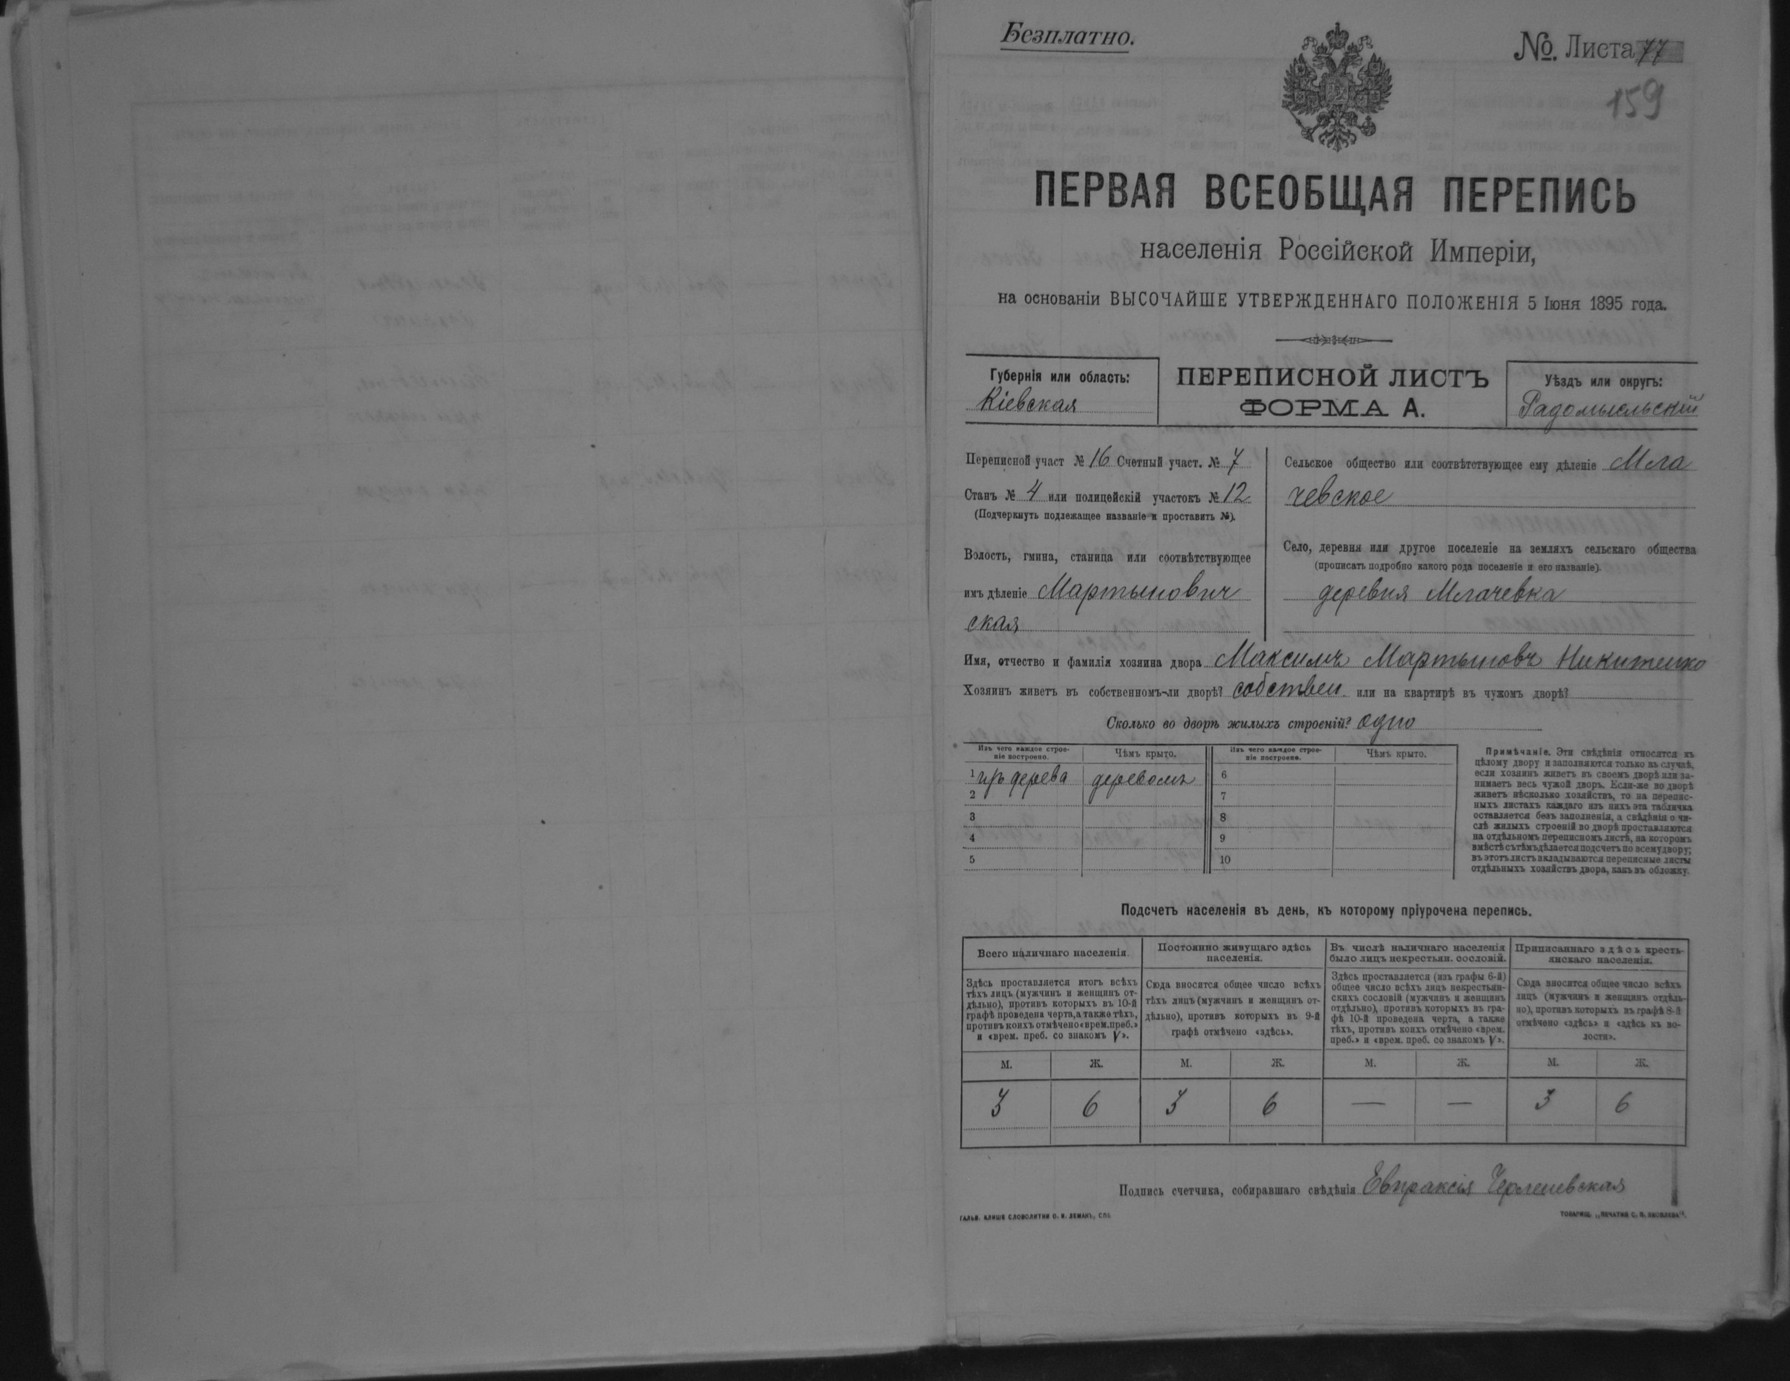 Безплатно.
№. Листа 77
159
ПЕРВАЯ ВСЕОБЩАЯ ПЕРЕПИСЬ
населенія Россійской Имперіи,
на основаніи ВЫСОЧАЙШЕ УТВЕРЖДЕННАГО ПОЛОЖЕНІЯ 5 Іюня 1895 года.
Губернія или область:
Кіевская
ПЕРЕПИСНОЙ ЛИСТЪ
ФОРМА А.
Уѣздъ или округъ:
Радомысльскій
Переписной участ № 16 Счетный участ. № 7
Станъ № 4 или полицейскій участокъ № 12.
(Подчеркнуть подлежащее названіе и проставить №).
Волость, гмина, станица или соотвѣтствующее
имъ дѣленіе Мартынович
ская
Сельское общество или соотвѣтствующее ему дѣленіе Мла
чевское
Село, деревня или другое поселеніе на земляхъ сельскаго общества
(прописать подробно какого рода поселеніе и его названіе).
деревня Млачевка
Имя, отчество и фамилія хозяина двора Максимъ Мартыновъ Никитенко
Хозяинъ живетъ въ собственномъ-ли дворѣ? собствен. или на квартирѣ въ чужомъ дворѣ?
Сколько во дворѣ жилыхъ строеній? одно
Изъ чего каждое строе-
ніе построено.
Чѣмъ крыто.
Изъ чего каждое строе-
ніе построено.
Чѣмъ крыто.
1 изъ дерева деревомъ 6
2 7
3 8
4 9
5 10
Примѣчаніе. Эти свѣдѣнія относятся къ
цѣлому двору и заполняются только въ случаѣ,
если хозяинъ живетъ въ своемъ дворѣ или за-
нимаетъ весь чужой дворъ. Если-же во дворѣ
живетъ нѣсколько хозяйствъ, то на перепис-
ныхъ листахъ каждаго изъ нихъ эта табличка
оставляется безъ заполненія, а свѣдѣнія о чи-
слѣ жилыхъ строеній во дворѣ проставляются
на отдѣльномъ переписномъ листѣ, на которомъ
вмѣстѣ съ тѣмъ дѣлается подсчетъ по всему двору;
въ этотъ листъ вкладываются переписные листы
отдѣльныхъ хозяйствъ двора, какъ въ обложку.
Подсчетъ населенія въ день, къ которому пріурочена перепись.
Всего наличнаго населенія.
Здѣсь проставляется итогъ всѣхъ
тѣхъ лицъ (мужчинъ и женщинъ от-
дѣльно), противъ которыхъ въ 10-й
графѣ проведена черта, а также тѣхъ,
противъ коихъ отмѣчено «врем. преб.»
и «врем. преб. со знакомъ V».
Постоянно живущаго здѣсь
населенія.
Сюда вносится общее число всѣхъ
тѣхъ лицъ (мужчинъ и женщинъ от-
дѣльно), противъ которыхъ въ 9-й
графѣ отмѣчено «здѣсь».
Въ числѣ наличнаго населенія
было лицъ некрестьян. сословій.
Здѣсь проставляется (изъ графы 6-й)
общее число всѣхъ лицъ некрестьян-
скихъ сословій (мужчинъ и женщинъ
отдѣльно), противъ которыхъ въ гра-
фѣ 10-й проведена черта, а также
тѣхъ, противъ коихъ отмѣчено «врем.
преб.» и «врем. преб. со знакомъ V».
Приписаннаго здѣсь кресть-
янскаго населенія.
Сюда вносится общее число всѣхъ
лицъ (мужчинъ и женщинъ отдѣль-
но), противъ которыхъ въ графѣ 8-й
отмѣчено «здѣсь» и «здѣсь къ во-
лости».
М. Ж. М. Ж. М. Ж. М. Ж.
3 6 3 6 — — 3 6
Подпись счетчика, собиравшаго свѣдѣнія Евпраксія
ГАЛЬВ. КЛИШЕ СЛОВОЛИТНИ О. И. ЛЕМАНЪ, СПБ.
ТОВАРИЩ. „ПЕЧАТНЯ С. П. ЯКОВЛЕВА".